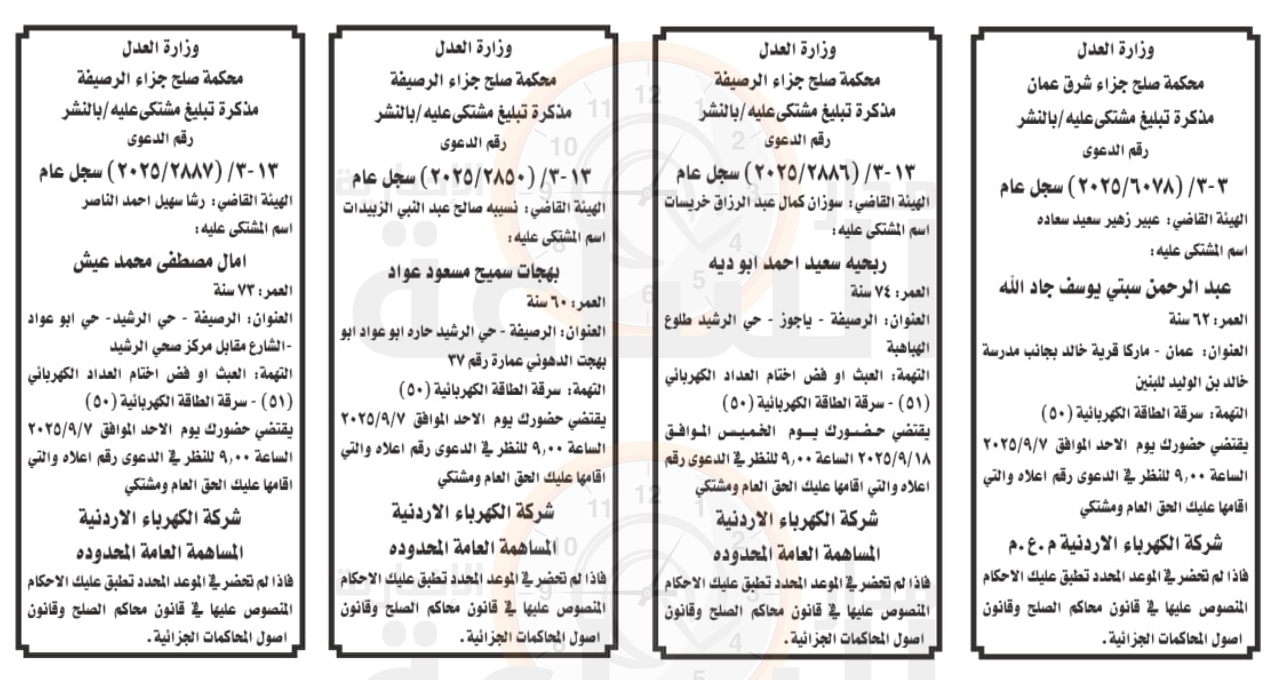 وزارة العدل
محكمة صلح جزاء شرق عمان
مذكرة تبليغ مشتكى عليه /بالنشر
رقم الدعوى
٣-٣/ (٢٠٢٥/٦٠٧٨) سجل عام
الهيئة القاضي: عبير زهير سعيد سعاده
اسم المشتكى عليه:
عبد الرحمن سبتي يوسف جاد الله
العمر: ٦٢ سنة
العنوان: عمان - ماركا قرية خالد بجانب مدرسة
خالد بن الوليد للبنين
التهمة: سرقة الطاقة الكهربائية (٥٠)
يقتضي حضورك يوم الاحد الموافق ٢٠٢٥/٩/٧
الساعة ٩,٠٠ للنظر في الدعوى رقم اعلاه والتي
اقامها عليك الحق العام ومشتكي
شركة الكهرباء الاردنية م.ع.م
فاذا لم تحضر في الموعد المحدد تطبق عليك الاحكام
المنصوص عليها في قانون محاكم الصلح وقانون
اصول المحاكمات الجزائية.
وزارة العدل
محكمة صلح جزاء الرصيفة
مذكرة تبليغ مشتكى عليه /بالنشر
رقم الدعوى
١٣-٣/ (٢٠٢٥/٢٨٨٦) سجل عام
الهيئة القاضي: سوزان كمال عبد الرزاق خريسات
اسم المشتكى عليه:
ربحيه سعيد احمد ابو ديه
العمر: ٧٤ سنة
العنوان: الرصيفة - ياجوز - حي الرشيد طلوع
الهباهبة
التهمة: العبث او فض اختام العداد الكهربائي
(٥١) - سرقة الطاقة الكهربائية (٥٠)
يقتضي حضورك يوم الخميس الموافق
٢٠٢٥/٩/١٨ الساعة ٩,٠٠ للنظر في الدعوى رقم
اعلاه والتي اقامها عليك الحق العام ومشتكي
شركة الكهرباء الاردنية
المساهمة العامة المحدوده
فاذا لم تحضر في الموعد المحدد تطبق عليك الاحكام
المنصوص عليها في قانون محاكم الصلح وقانون
اصول المحاكمات الجزائية.
وزارة العدل
محكمة صلح جزاء الرصيفة
مذكرة تبليغ مشتكى عليه /بالنشر
رقم الدعوى
١٣-٣/ (٢٠٢٥/٢٨٥٠) سجل عام
الهيئة القاضي: نسيبه صالح عبد النبي الزبيدات
اسم المشتكى عليه:
بهجات سميح مسعود عواد
العمر: ٦٠ سنة
العنوان: الرصيفة - حي الرشيد حاره ابو عواد ابو
بهجت الدهوني عمارة رقم ٣٧
التهمة: سرقة الطاقة الكهربائية (٥٠)
يقتضي حضورك يوم الاحد الموافق ٢٠٢٥/٩/٧
الساعة ٩,٠٠ للنظر في الدعوى رقم اعلاه والتي
اقامها عليك الحق العام ومشتكي
شركة الكهرباء الاردنية
المساهمة العامة المحدوده
فاذا لم تحضر في الموعد المحدد تطبق عليك الاحكام
المنصوص عليها في قانون محاكم الصلح وقانون
اصول المحاكمات الجزائية.
وزارة العدل
محكمة صلح جزاء الرصيفة
مذكرة تبليغ مشتكى عليه /بالنشر
رقم الدعوى
١٣-٣/ (٢٠٢٥/٢٨٨٧) سجل عام
الهيئة القاضي: رشا سهيل احمد الناصر
اسم المشتكى عليه:
امال مصطفى محمد عيش
العمر: ٧٣ سنة
العنوان: الرصيفة - حي الرشيد- حي ابو عواد
-الشارع مقابل مركز صحي الرشيد
التهمة: العبث او فض اختام العداد الكهربائي
(٥١) - سرقة الطاقة الكهربائية (٥٠)
يقتضي حضورك يوم الاحد الموافق ٢٠٢٥/٩/٧
الساعة ٩,٠٠ للنظر في الدعوى رقم اعلاه والتي
اقامها عليك الحق العام ومشتكي
شركة الكهرباء الاردنية
المساهمة العامة المحدوده
فاذا لم تحضر في الموعد المحدد تطبق عليك الاحكام
المنصوص عليها في قانون محاكم الصلح وقانون
اصول المحاكمات الجزائية.